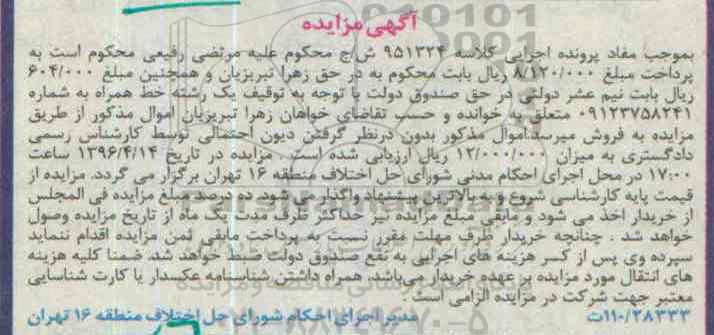 آگهی مزایده
بموجب مفاد پرونده اجرایی کلاسه ۹۵۱۳۲۴ ش/ج محکوم علیه مرتضی رفیعی محکوم است به
پرداخت مبلغ ۸/۱۲۰/۰۰۰ ریال بابت محکوم به در حق زهرا تبریزیان و همچنین مبلغ ۶۰۴/۰۰۰
ریال بابت نیم عشر دولتی در حق صندوق دولت با توجه به توقیف یک رشته خط همراه به شماره
۰۹۱۲۳۷۵۸۲۴۱ متعلق به خوانده و حسب تقاضای خواهان زهرا تبریزیان اموال مذکور از طریق
مزایده به فروش میرسد.اموال مذکور بدون درنظر گرفتن دیون احتمالی توسط کارشناس رسمی
دادگستری به میزان ۱۲/۰۰۰/۰۰۰ ریال ارزیابی شده است . مزایده در تاریخ ۱۳۹۶/۴/۱۴ ساعت
۱۷:۰۰ در محل اجرای احکام مدنی شورای حل اختلاف منطقه ۱۶ تهران برگزار می گردد. مزایده از
قیمت پایه کارشناسی شروع و به بالاترین پیشنهاد واگذار می شود. ده درصد مبلغ مزایده فی المجلس
از خریدار اخذ می شود و مابقی مبلغ مزایده نیز حداکثر ظرف مدت یک ماه از تاریخ مزایده وصول
خواهد شد . چنانچه خریدار ظرف مهلت مقرر نسبت به پرداخت مابقی ثمن مزایده اقدام ننماید
سپرده وی پس از کسر هزینه های اجرایی به نفع صندوق دولت ضبط خواهد شد. ضمنا کلیه هزینه
های انتقال مورد مزایده بر عهده خریدار می‌باشد. همراه داشتن شناسنامه عکسدار یا کارت شناسایی
معتبر جهت شرکت در مزایده الزامی است .
۱۱۰/۲۸۳۳۳ت مدیر اجرای احکام شورای حل اختلاف منطقه ۱۶ تهران